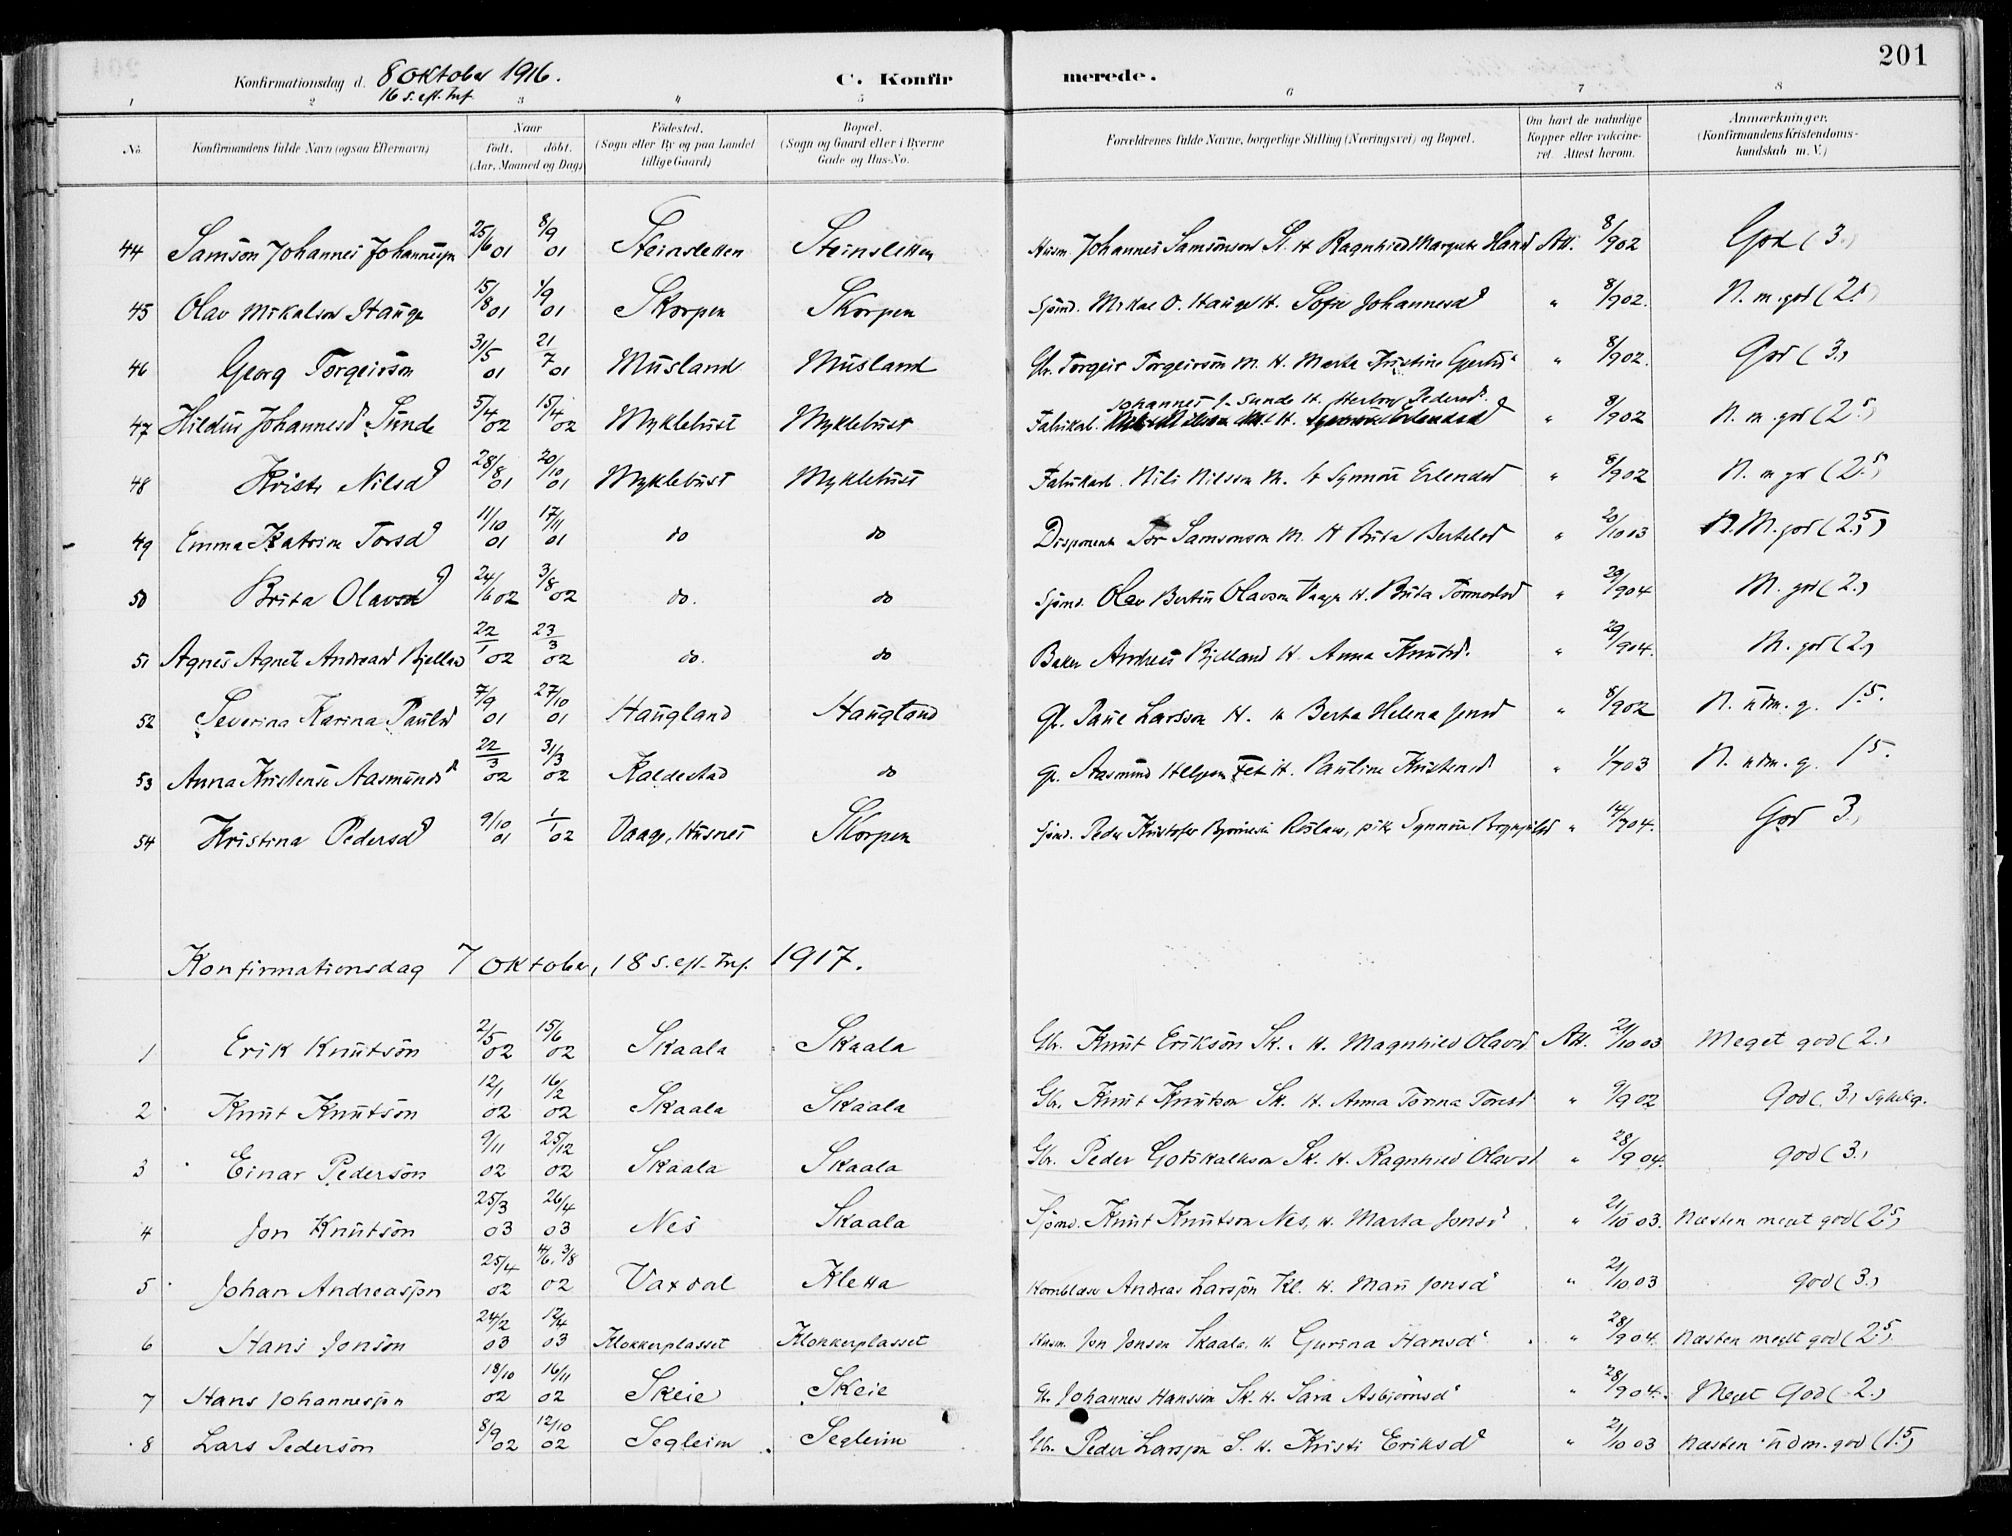 201
Konfirmationsdag d. 8 oktober 1916. C. Konfirmerede.
16 s. eft. Trf.
1 2 3 4 5 6 7 8
No. Konfirmandens fulde Navn (ogsaa Efternavn) Naar født. døbt. (Aar, Maaned og Dag) Fødested. (Sogn eller By og paa Landet tillige Gaard) Bopæl. (Sogn og Gaard eller i Byerne Gade og Hus-No. Forældrenes fulde Navne, borgerlige Stilling (Næringsvei) og Bopæl. Om havt de naturlige Kopper eller vakcineret. Attest herom. Anmærkninger. (Konfirmandens Kristendomskundskab m. V.)
44 Samson Johannes Johannessn 25/6 01 8/9 01 Steinsletten Steinsletten Husm. Johannes Samsonson St. H. Ragnhild Margrete Hansd Att. 8/9 02 God (3.)
45 Olav Mikalson Hauge 15/8 01 1/9 01 Skorpen Skorpen Sjømd. Mikal O. Hauge H. Sofie Johannesd " 8/9 02. N. m. god (2.5)
46 Georg Torgeirson 31/5 01 21/7 01 Musland Musland Gbr. Torgeir Torgeirson M. H. Marta Kristine " 8/9 02. God (3.)
47 Hildur Johannesd. Sunde 5/4 02 15/4 02 Myklebust Myklebust Fabrikarb. Johannes J. Sunde H. Herborg Pedersd. " 8/9 02 N. m. god (2.5)
48 Kristi Nilsd 28/8 01 20/10 01 Myklebust Myklebust Fabrikarb. Nils Nilsson M. H. Synnøve Erlendsd " 8/9 02 N. m. god (2.5)
49 Emma Katrine Torsd 11/10 01 17/11 01 do do Disponent Tor Samsonson M. H. Brita Bertelsd " 20/10 03 N. M. god (2.5)
50 Brita Olavsd 24/6 02 3/8 02 do. do Sjømd. Olav Bertin Olavson Vaage H. Brita Tormodsd " 29/9 04 M. god (2.)
51 Agnes Agnete Andreasd Bjelland 22/1 02 23/3 02 do. do Baker Andreas Bjelland H. Anna Knutsd. " 29/9 04. M. god (2.)
52 Severina Karina Paulsd 7/9 01 27/10 01 Haugland Haugland Gbr. Paul Larsson H. H. Berta Helena Jonsd " 8/9 02 N. udm. g. 1.5.
53 Anna Kristense Aasmundsd 22/3 02 31/3 02 Kaldestad do Gbr. Aasmund Helgesen Fet H. Pauline Kristensd. " 1/7 03 N. udm. g. 1.5.
54 Kristina Pedersd 9/10 01 1/1 02 Vaage, Husnes Skorpen Sjømd. Peder Kristofer, pike Synnøve " 14/7 04. God 3.)
Konfirmationsdag 7 oktober, 18 s. eft. Trf. 1917.
1 Erik Knutson 2/5 02 15/6 02 Skaala Skaala Gbr. Knut Erikson Sk. H. Magnhild Olavsd. Att. 21/10 03 Meget god (2.)
2 Knut Knutson 12/1 02 16/2 02 Skaala Skaala Gbr. Knut Knutson Sk. H. Anna Torina Toresd " 9/9 02 God (3.) Sykelig.
3 Einar Pederson 9/11 02 25/12 02 Skaala Skaala Gbr. Peder Gotskalkson Sk. H. Ragnhild Olavsd " 28/9 04. god (3.)
4 Jon Knutson 25/3 03 26/4 03 Nes Skaala Sjømd. Knut Knutson Nes, H. Marta Jonsd " 21/10 03. Næsten meget god (2.5)
5 Johan Andreassøn 25/4 02 4/6. 3/8 02 Vaxdal Kletta Hornblæser Andreas Larssøn Kl. H. Mari Jonsd " 21/10 03 god (3.)
6 Hans Jonson 24/2 03 12/4 03 Klokkerplasset Klokkerplasset Husm. Jon Jonson Skaala, H. Gurina Hansd " 28/9 04. Næsten meget god (2.5)
7 Hans Johannessøn 18/10 02 16/11 02 Skeie Skeie Gbr. Johannes Hansson Sk. H. Sara Asbjørnsd " 28/9 04. Meget God (2.)
8 Lars Pederson 8/9 02 12/10 02 Segleim Segleim Gbr. Peder Larssøn S. H. Kristi Eriksd " 21/10 03 Næsten udm. god (1.5)